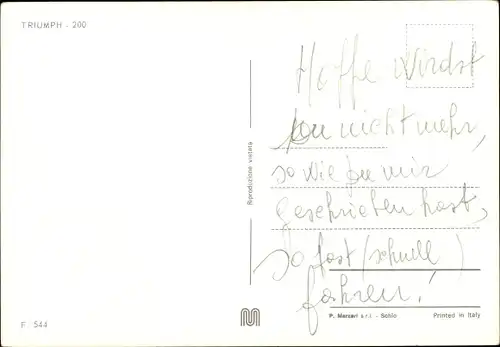 TRIUMPH - 200
Hoffe wirdst
Du nicht mehr,
so wie Du mir
geschrieben hast,
so fast (schnell)
fahren!
Riproduzione vietata
F. 544
P. Marzari s.r.l. - Schio
Printed in Italy